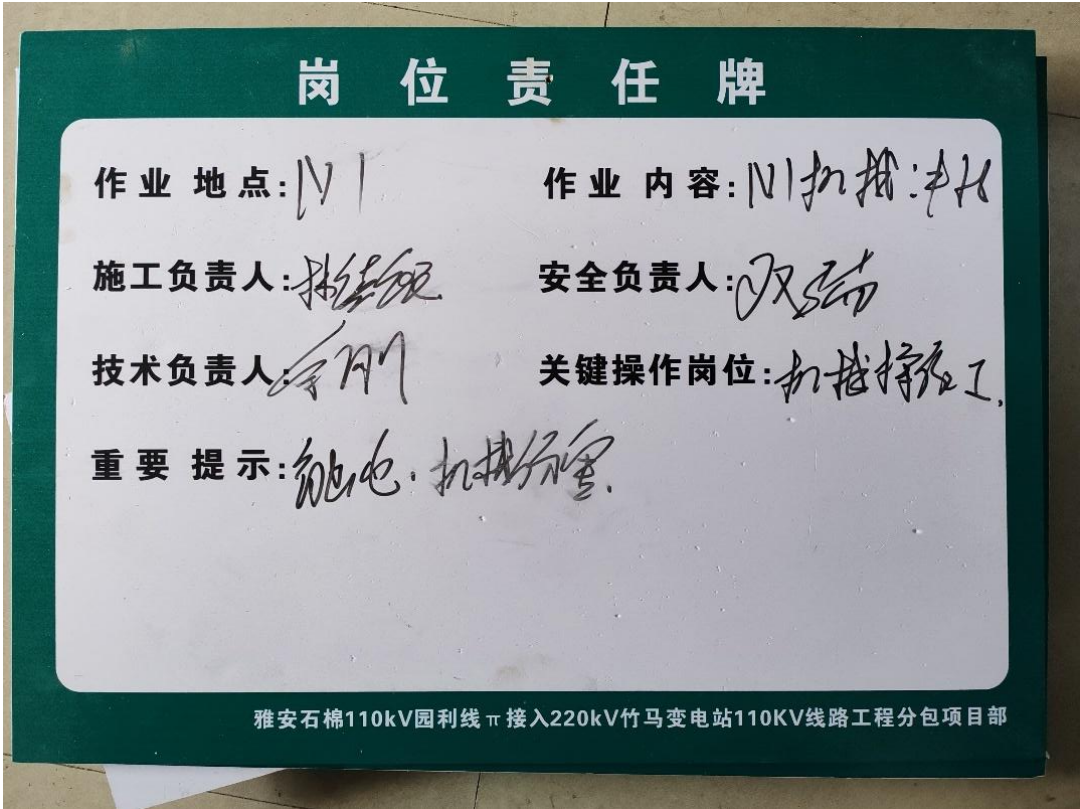 岗位责任牌
作业地点:N1 作业内容:N1机械冲孔
施工负责人: 安全负责人:
技术负责人:余刚 关键操作岗位:机械操作工.
重要提示:触电.机械伤害.
雅安石棉110kV园利线π接入220kV竹马变电站110KV线路工程分包项目部